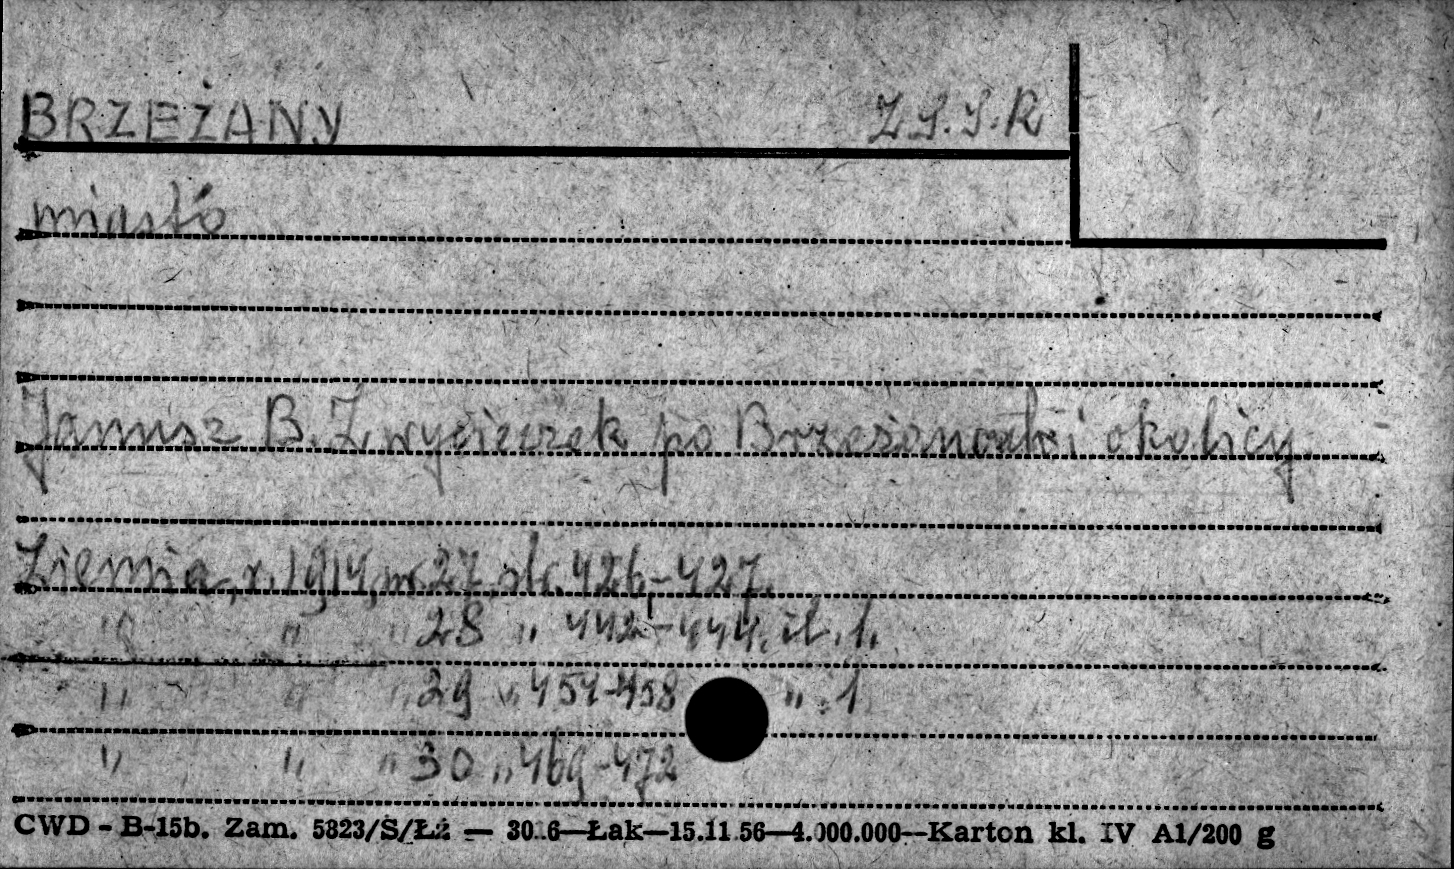 BRZEŻANY Z.S.S.R
miasto
Janusz B. Z wycieczek po Brzeżanach i okolicy.
Ziemia, r. 1914, nr. 27, str. 426-427.
" " " 28 " 442-444. il. 1.
" " " 29 " 457-458 " . 1
" " " 30 " 469-472
CWD - B-15b. Zam. 5823/S/Łż — 30.6—Łak—15.11.56—4.000.000—Karton kl. IV A1/200 g